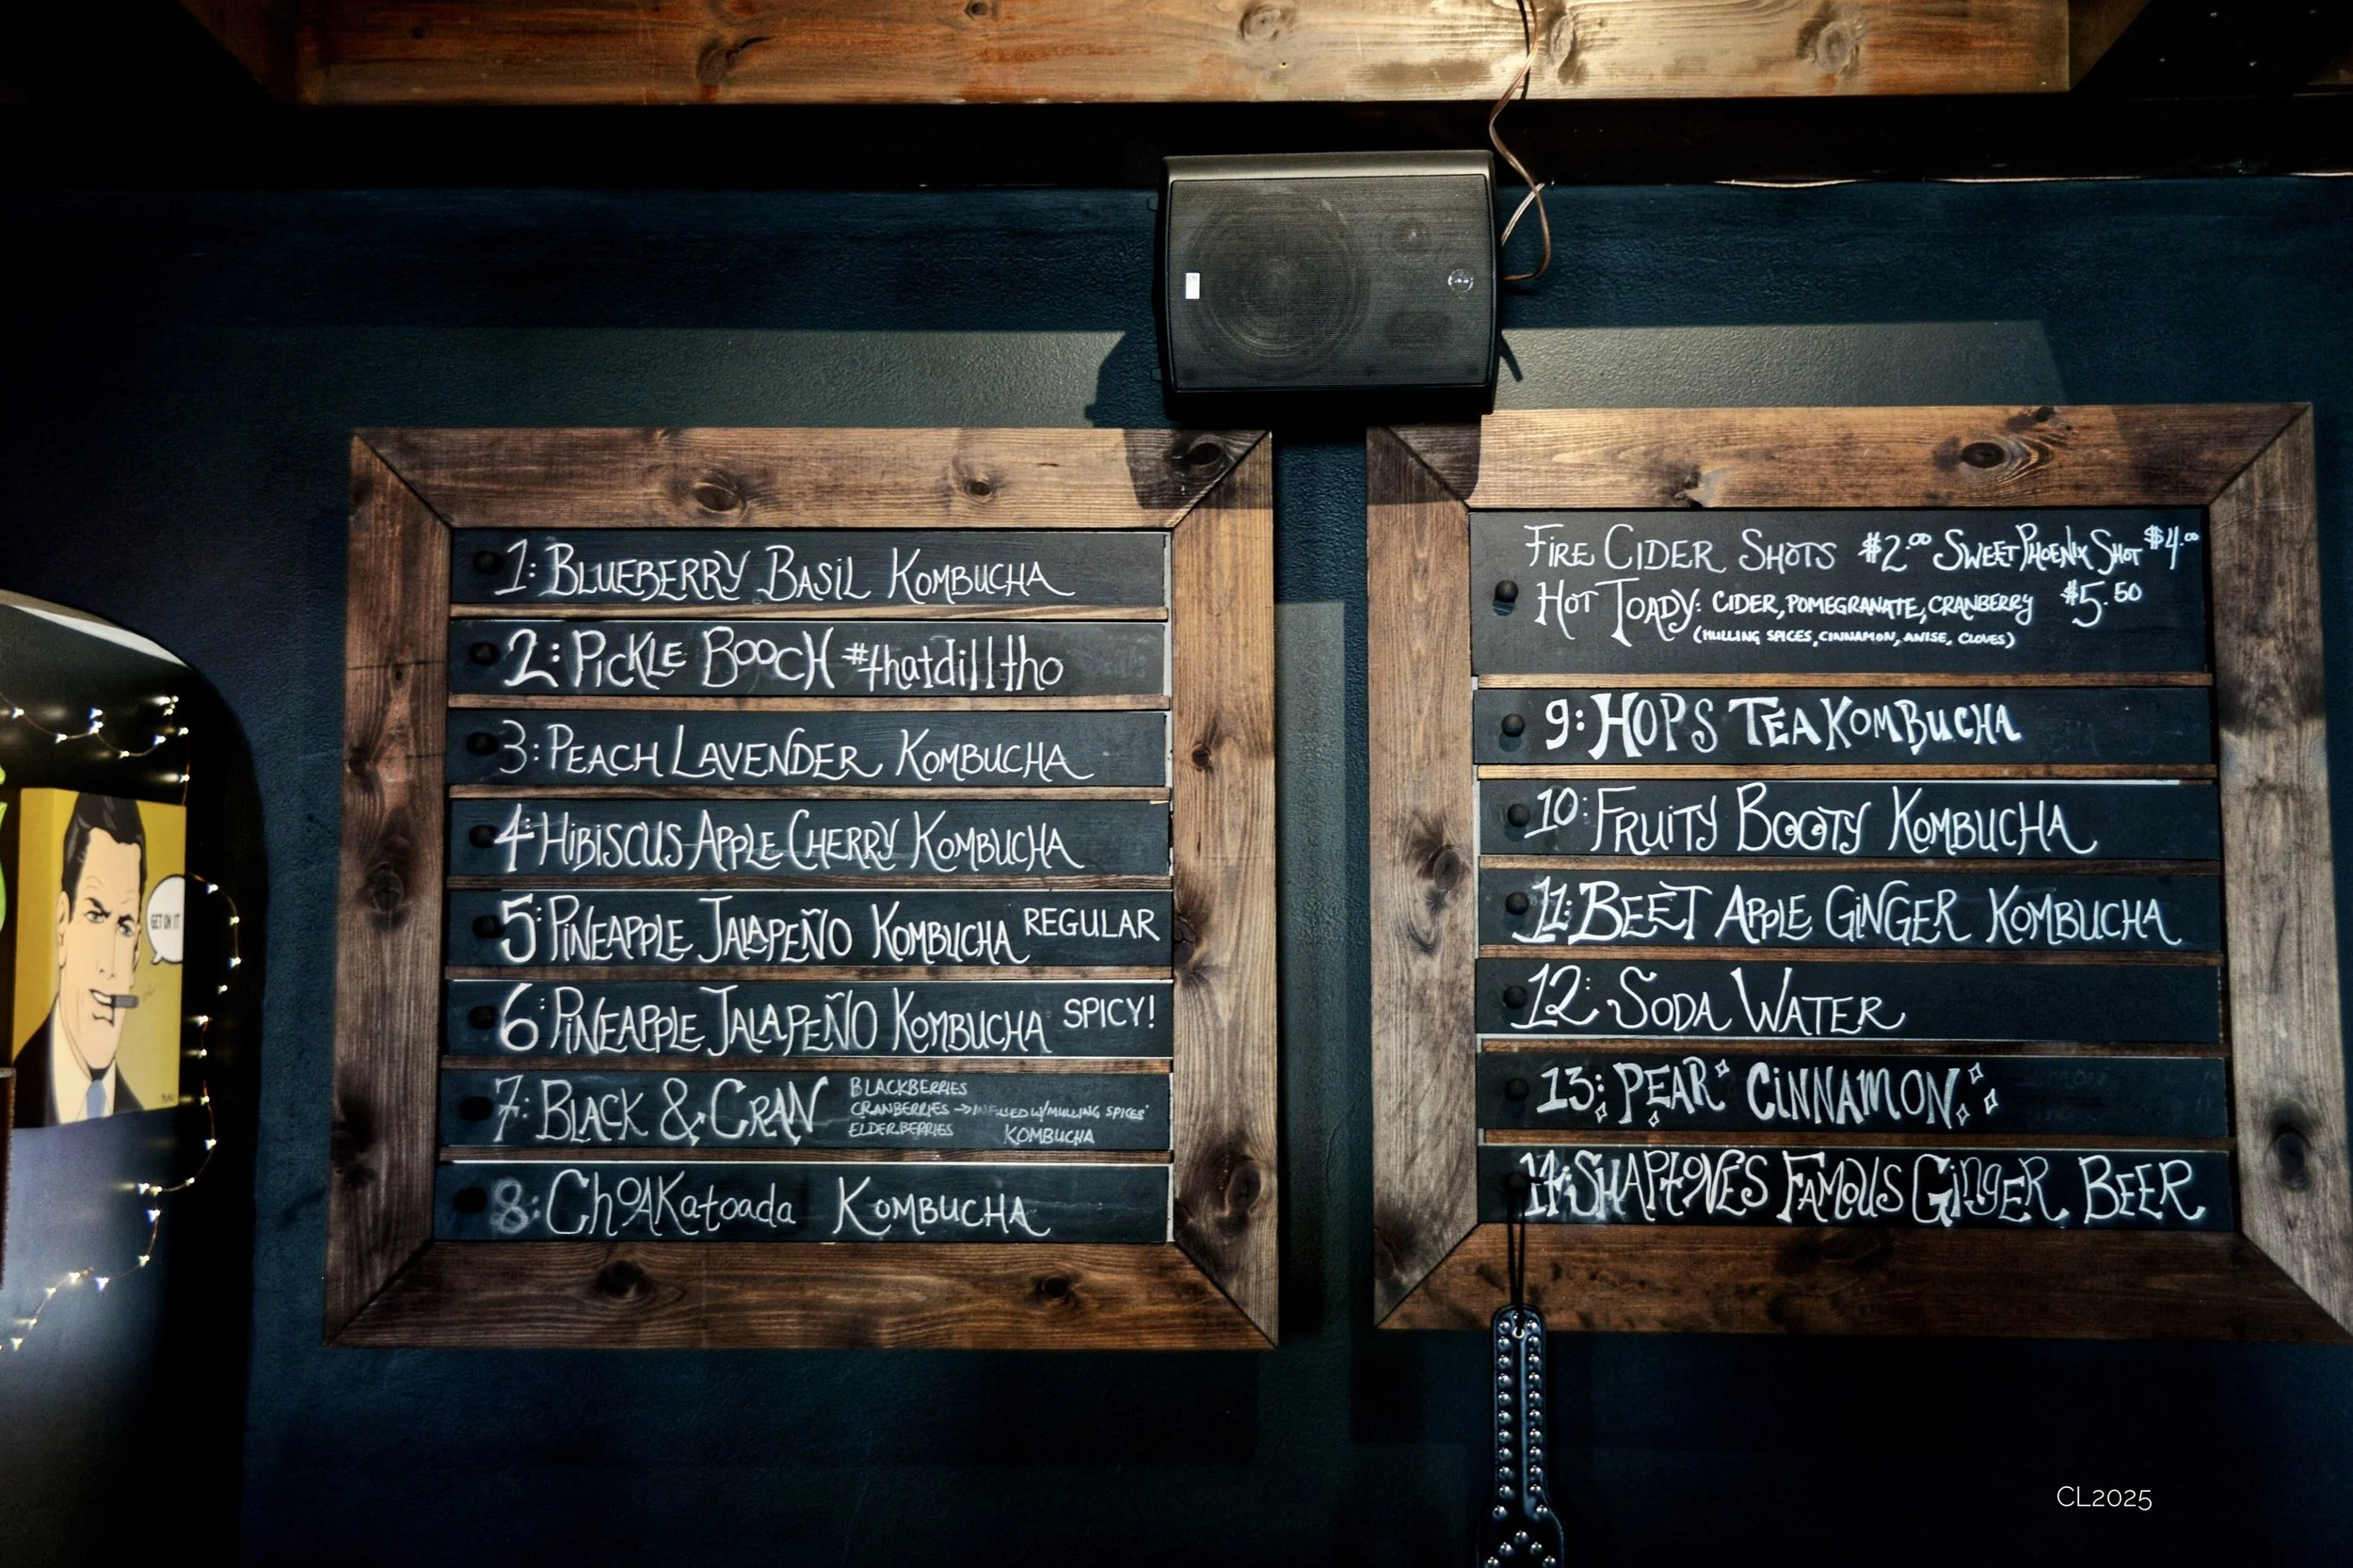 1: BLUEBERRY BASIL KOMBUCHA
2: PICKLE BOOCH #thatdilltho
3: PEACH LAVENDER KOMBUCHA
4: HIBISCUS APPLE CHERRY KOMBUCHA
5: PINEAPPLE JALAPEÑO KOMBUCHA REGULAR
6: PINEAPPLE JALAPEÑO KOMBUCHA SPICY!
7: BLACK & CRAN
BLACKBERRIES
CRANBERRIES → INFUSED W/MULLING SPICES
ELDERBERRIES KOMBUCHA
8: ChOAKatoada KOMBUCHA
FIRE CIDER SHOTS $2.00 SWEET PHOENIX SHOT $4.00
HOT TOADY: CIDER, POMEGRANATE, CRANBERRY $5.50
(MULLING SPICES, CINNAMON, ANISE, CLOVES)
9: HOPS TEA KOMBUCHA
10: FRUITY BOOTY KOMBUCHA
11: BEET APPLE GINGER KOMBUCHA
12: SODA WATER
13: PEAR CINNAMON
14: FAMOUS GINGER BEER
GET ON IT
CL2025